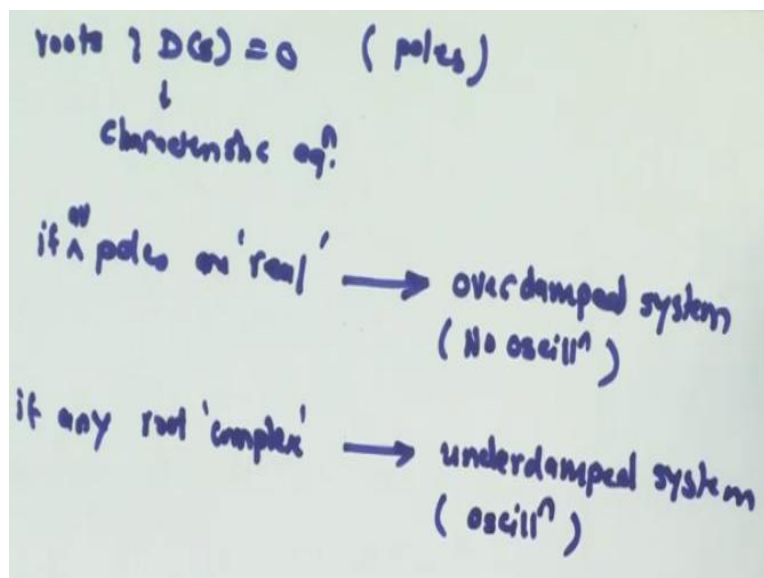 roots of D(s) = 0 (poles)
↓
Characteristic eqⁿ.
if ^all poles are 'real' → overdamped system
(No oscillⁿ)
if any root 'complex' → underdamped system
(oscillⁿ)